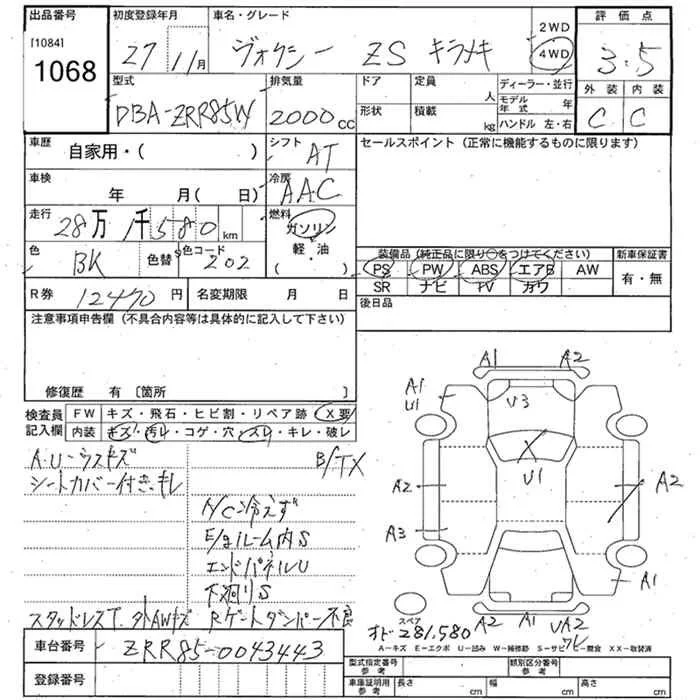 出品番号
[1084]
1068
初度登録年月
27 11月
車名・グレード
ヴォクシー ZS キラメキ
2WD
4WD
評価点
3.5
外装 内装
C C
型式
DBA-ZRR85W
排気量
2000cc
ドア
定員
人
形状
積載
kg
ディーラー・並行
モデル年式 年
ハンドル 左・右
車歴
自家用・( )
シフト
AT
セールスポイント (正常に機能するものに限ります)
車検
年 月 ( 日)
冷房
AAC
走行
28万1千580km
燃料
ガソリン
軽・油
( )
色
BK
色替
色コード
202
装備品 (純正品に限り○をつけてください)
新車保証書
PS PW ABS エアB AW
SR ナビ TV カワ
有・無
R券
12470円
名変期限 月 日
後日品
注意事項申告欄 (不具合内容等は具体的に記入して下さい)
修復歴 有 [箇所 ]
検査員記入欄
FW キズ・飛石・ヒビ割・リペア跡・X要
内装 キズ・汚れ・コゲ・穴・スレ・キレ・破レ
A・U-ウスキズ
B/TX
シートカバー付き、キレ
A/C冷えず
E/gルーム内S
エンドパネルU
下廻りS
スタッドレスT. 外AWキズ Rゲートダンパー不良
A1 A2
A1
U1
U3
X
U1
A2
A2
A3
A1
スペア
オド281,580
A2 A1 UA2
ワレ
A-キズ E-エクボ U-凹み W-補修跡 S-サビ C-腐食 XX-取替済
車台番号
ZRR85-0043443
登録番号
型式指定番号
参考
類別区分番号
参考
車庫証明用
参考
長さ cm
幅 cm
高さ cm